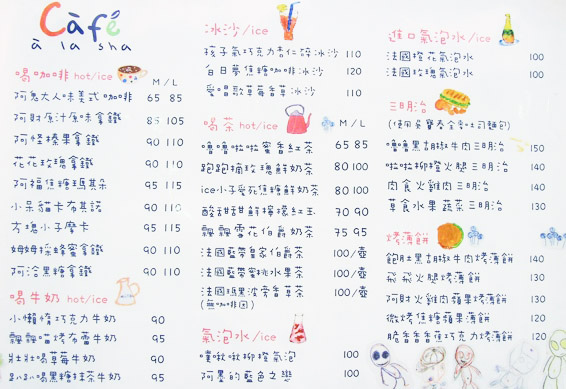 Café
à la sha
喝咖啡 hot/ice M / L
阿鬼大人味美式咖啡 65 85
阿財原汁原味拿鐵 85 105
阿怪榛果拿鐵 90 110
花花玫瑰拿鐵 90 110
阿福焦糖瑪其朵 95 115
小呆貓卡布其諾 90 110
方塊小子摩卡 95 115
姆姆採蜂蜜拿鐵 90 110
阿冾黑糖拿鐵 90 110
喝牛奶 hot/ice
小懶惰巧克力牛奶 90
飄飄喵烤布蕾牛奶 95
壯壯喝草莓牛奶 90
趴趴喝黑糖抹茶牛奶 95
冰沙/ice
孩子氣巧克力杏仁碎冰沙 110
白日夢焦糖咖啡冰沙 120
愛唱歌草莓香草冰沙 110
喝茶 hot/ice M / L
嚕嚕啦啦蜜香紅茶 65 85
跑跑摘玫瑰鮮奶茶 80 100
ice小子愛死焦糖鮮奶茶 80 100
酸甜甜鮮檸檬紅玉 70 90
飄飄雪花伯爵奶茶 75 95
法國藍帶皇家伯爵茶 100/壺
法國藍帶蜜桃水果茶 100/壺
法國瑪黑波旁香草茶 100/壺
(無咖啡因)
氣泡水/ice
啾啾柳橙氣泡 100
阿墨的藍色之戀 100
進口氣泡水/ice
法國橙花氣泡水 100
法國玫瑰氣泡水 100
三明治
嚕嚕黑胡椒牛肉三明治 150
啦啦柳橙火腿三明治 140
肉食火雞肉三明治 140
草食水果蔬菜三明治 130
烤薄餅
飽肚黑胡椒牛肉烤薄餅 140
飛飛火腿烤薄餅 130
阿財火雞肉蘋果烤薄餅 130
微烤焦糖蘋果薄餅 120
脆香香香蕉巧克力烤薄餅 120